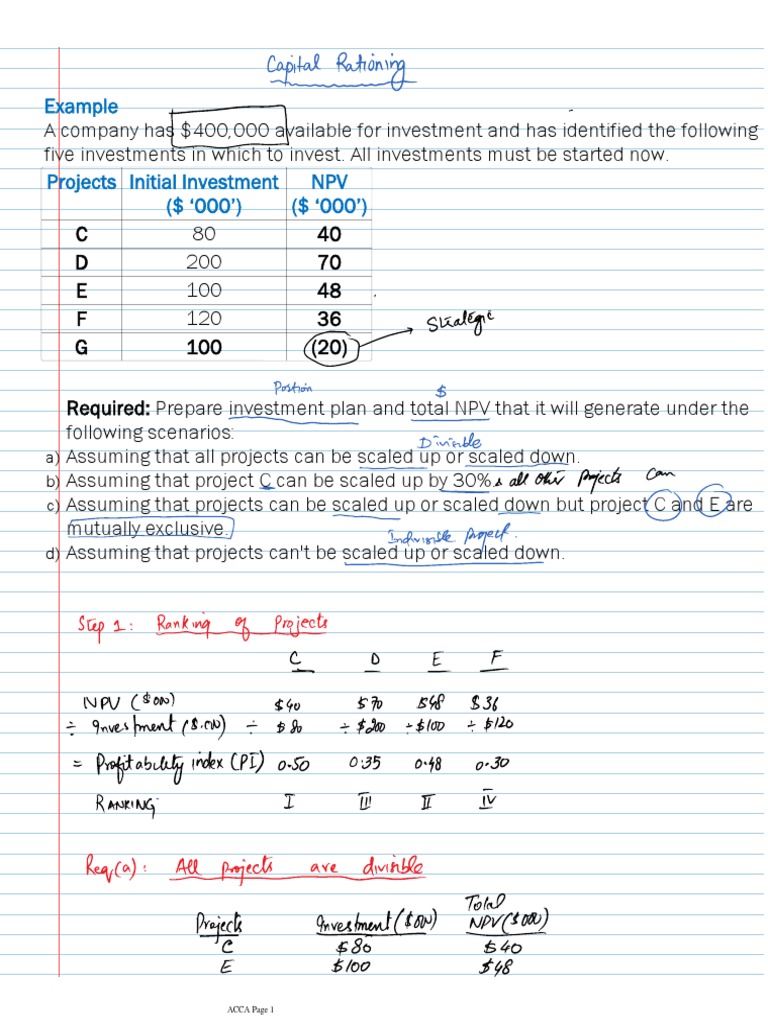 Capital Rationing
Example
A company has $400,000 available for investment and has identified the following
five investments in which to invest. All investments must be started now.
Projects Initial Investment NPV
($ ‘000’) ($ ‘000’)
C 80 40
D 200 70
E 100 48
F 120 36
G 100 (20) → Strategic
Postion $
Required: Prepare investment plan and total NPV that it will generate under the
following scenarios:
Divisible
a) Assuming that all projects can be scaled up or scaled down.
b) Assuming that project C can be scaled up by 30% & all other projects can
c) Assuming that projects can be scaled up or scaled down but project C and E are
mutually exclusive.
Indivisible project.
d) Assuming that projects can't be scaled up or scaled down.
Step 1: Ranking of Projects
C D E F
NPV ($000) $40 $70 $48 $36
÷ Investment ($.000) ÷ $80 ÷ $200 ÷ $100 ÷ $120
= Profitability index (PI) 0.50 0.35 0.48 0.30
RANKING I III II IV
Req(a): All projects are divisible
Total
Projects Investment ($000) NPV ($000)
C $80 $40
E $100 $48
ACCA Page 1